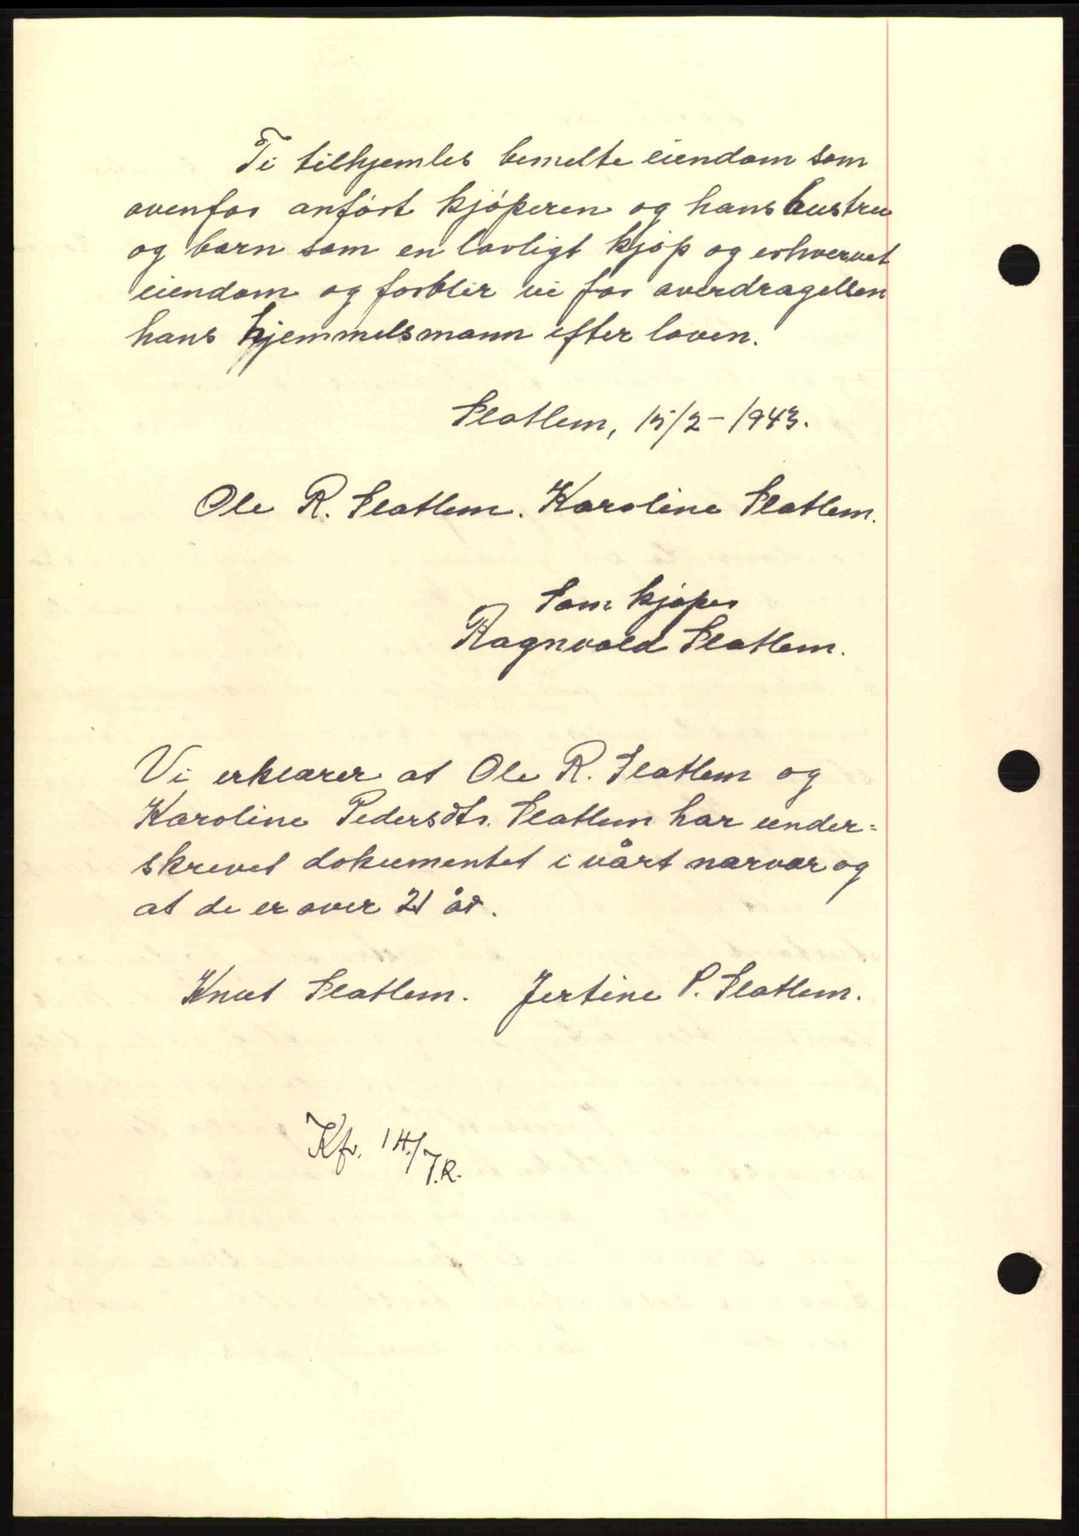 Ti tilhjemles bemelte eiendom som
ovenfor anført kjøperen og hans hustru
og barn som en lovligt kjøp og erhvervet
eiendom og forblir vi for overdragelsen
hans hjemmelsmann efter loven.
Slatlem, 15/2-1943.
Ole R. Slatlem. Karoline Slatlem.
Som kjøper
Ragnvald Slatlem.
Vi erklærer at Ole R. Slatlem og
Karoline Pedersdtr. Slatlem har under=
skrevet dokumentet i vårt nærvær og
at de er over 21 år.
Knut Slatlem. Jertine P. Slatlem.
Kfr. 14/J.R.